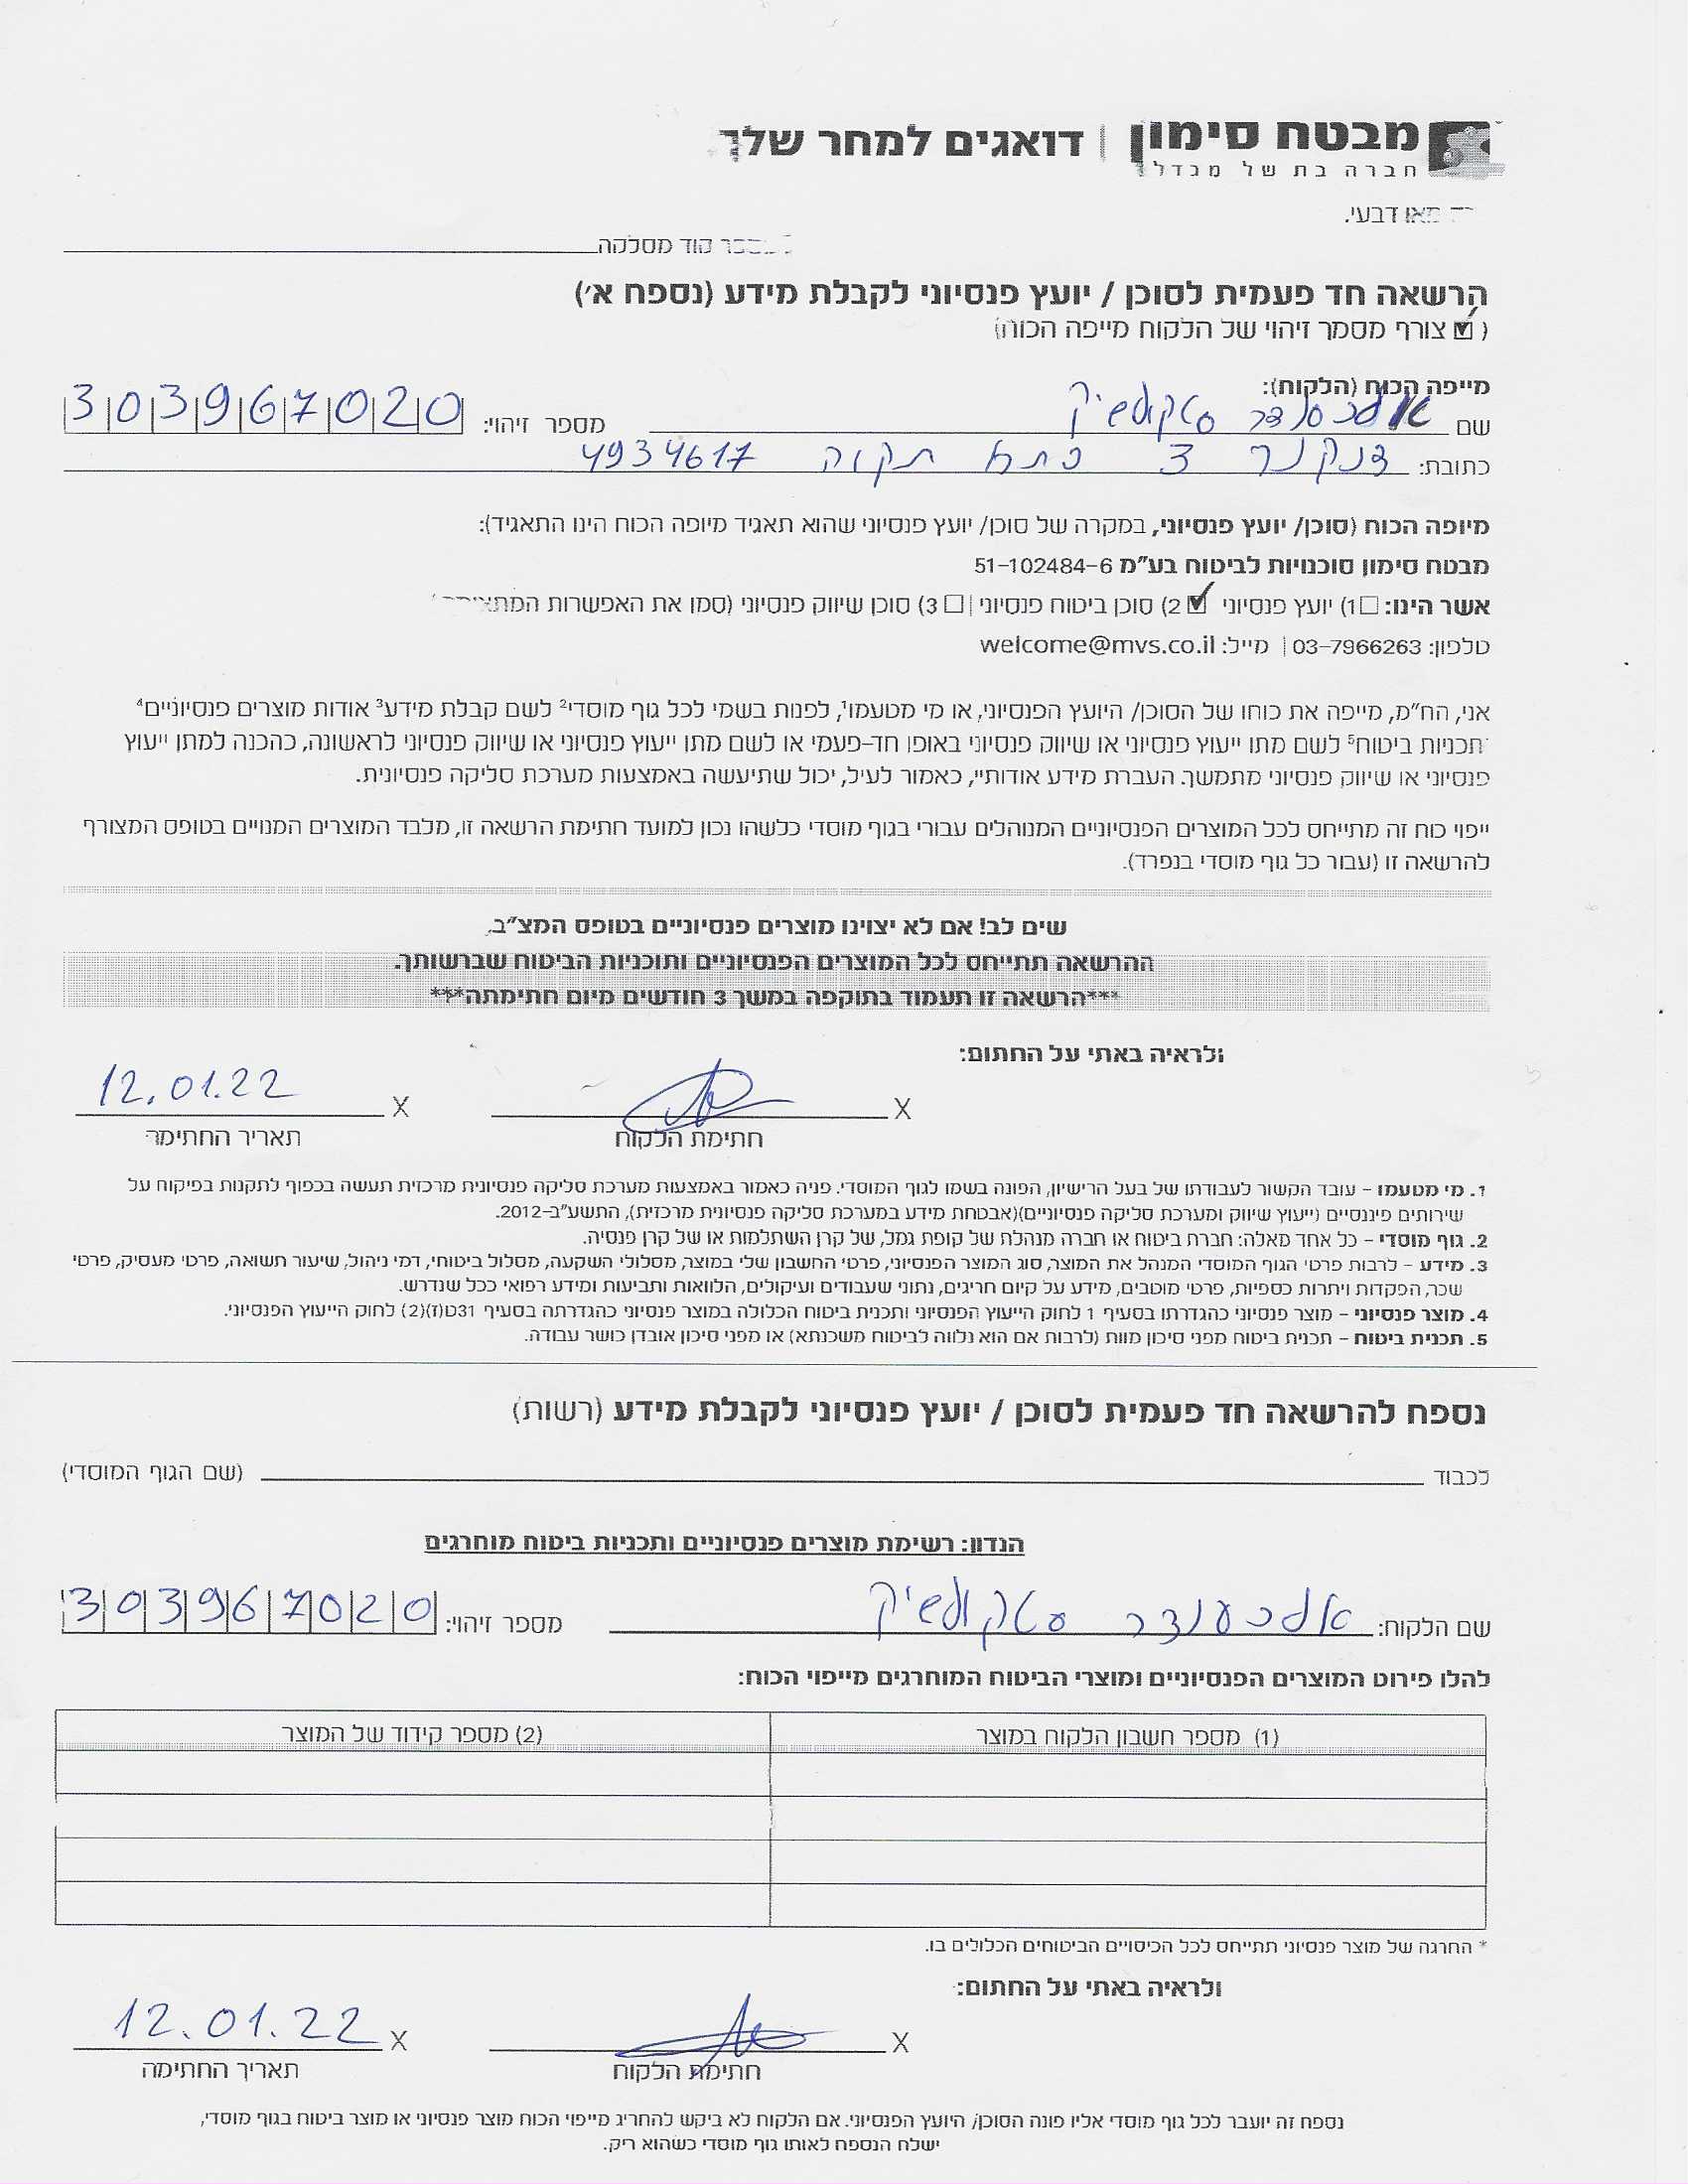 מבטח סימון | דואגים למחר שלך
חברה בת של מגדל
קוד מסלקה
הרשאה חד פעמית לסוכן / יועץ פנסיוני לקבלת מידע (נספח א׳)
( ☑ צורף מסמך זיהוי של הלקוח מייפה הכוח)
מייפה הכוח (הלקוח):
שם אלכסנדר מספר זיהוי: 303967020
כתובת: 3 פתח תקוה 4934617
מיופה הכוח (סוכן/ יועץ פנסיוני, במקרה של סוכן/ יועץ פנסיוני שהוא תאגיד מיופה הכוח הינו התאגיד):
מבטח סימון סוכנויות לביטוח בע״מ 51-102484-6
אשר הינו: ☐ 1) יועץ פנסיוני ☑ 2) סוכן ביטוח פנסיוני | ☐ 3) סוכן שיווק פנסיוני (סמן את האפשרות
טלפון: 03-7966263 | מייל: welcome@mvs.co.il
אני, הח״מ, מייפה את כוחו של הסוכן/ היועץ הפנסיוני, או מי מטעמו¹, לפנות בשמי לכל גוף מוסדי² לשם קבלת מידע³ אודות מוצרים פנסיוניים⁴
ותכניות ביטוח⁵ לשם מתן ייעוץ פנסיוני או שיווק פנסיוני באופן חד-פעמי או לשם מתן ייעוץ פנסיוני או שיווק פנסיוני לראשונה, כהכנה למתן ייעוץ
פנסיוני או שיווק פנסיוני מתמשך. העברת מידע אודותיי, כאמור לעיל, יכול שתיעשה באמצעות מערכת סליקה פנסיונית.
ייפוי כוח זה מתייחס לכל המוצרים הפנסיוניים המנוהלים עבורי בגוף מוסדי כלשהו נכון למועד חתימת הרשאה זו, מלבד המוצרים המנויים בטופס המצורף
להרשאה זו (עבור כל גוף מוסדי בנפרד).
שים לב! אם לא יצוינו מוצרים פנסיוניים בטופס המצ״ב,
ההרשאה תתייחס לכל המוצרים הפנסיוניים ותוכניות הביטוח שברשותך.
***הרשאה זו תעמוד בתוקפה במשך 3 חודשים מיום חתימתה***
ולראיה באתי על החתום:
X X 12.01.22
חתימת הלקוח תאריך החתימה
1. מי מטעמו – עובד הקשור לעבודתו של בעל הרישיון, הפונה בשמו לגוף המוסדי. פניה כאמור באמצעות מערכת סליקה פנסיונית מרכזית תעשה בכפוף לתקנות בפיקוח על
שירותים פיננסיים (ייעוץ שיווק ומערכת סליקה פנסיוניים)(אבטחת מידע במערכת סליקה פנסיונית מרכזית), התשע״ב-2012.
2. גוף מוסדי – כל אחד מאלה: חברת ביטוח או חברה מנהלת של קופת גמל, של קרן השתלמות או של קרן פנסיה.
3. מידע – לרבות פרטי הגוף המוסדי המנהל את המוצר, סוג המוצר הפנסיוני, פרטי החשבון שלי במוצר, מסלולי השקעה, מסלול ביטוחי, דמי ניהול, שיעור תשואה, פרטי מעסיק, פרטי
שכר, הפקדות ויתרות כספיות, פרטי מוטבים, מידע על קיום חריגים, נתוני שעבודים ועיקולים, הלוואות ותביעות ומידע רפואי ככל שנדרש.
4. מוצר פנסיוני – מוצר פנסיוני כהגדרתו בסעיף 1 לחוק הייעוץ הפנסיוני ותכנית ביטוח הכלולה במוצר פנסיוני כהגדרתה בסעיף 31ט(ז)(2) לחוק הייעוץ הפנסיוני.
5. תכנית ביטוח – תכנית ביטוח מפני סיכון מוות (לרבות אם הוא נלווה לביטוח משכנתא) או מפני סיכון אובדן כושר עבודה.
נספח להרשאה חד פעמית לסוכן / יועץ פנסיוני לקבלת מידע (רשות)
לכבוד (שם הגוף המוסדי)
הנדון: רשימת מוצרים פנסיוניים ותכניות ביטוח מוחרגים
שם הלקוח: אלכסנדר מספר זיהוי: 303967020
להלן פירוט המוצרים הפנסיוניים ומוצרי הביטוח המוחרגים מייפוי הכוח:
(1) מספר חשבון הלקוח במוצר (2) מספר קידוד של המוצר
* החרגה של מוצר פנסיוני תתייחס לכל הכיסויים הביטוחים הכלולים בו.
ולראיה באתי על החתום:
X X 12.01.22
חתימת הלקוח תאריך החתימה
נספח זה יועבר לכל גוף מוסדי אליו פונה הסוכן/ היועץ הפנסיוני. אם הלקוח לא ביקש להחריג מייפוי הכוח מוצר פנסיוני או מוצר ביטוח בגוף מוסדי,
ישלח הנספח לאותו גוף מוסדי כשהוא ריק.